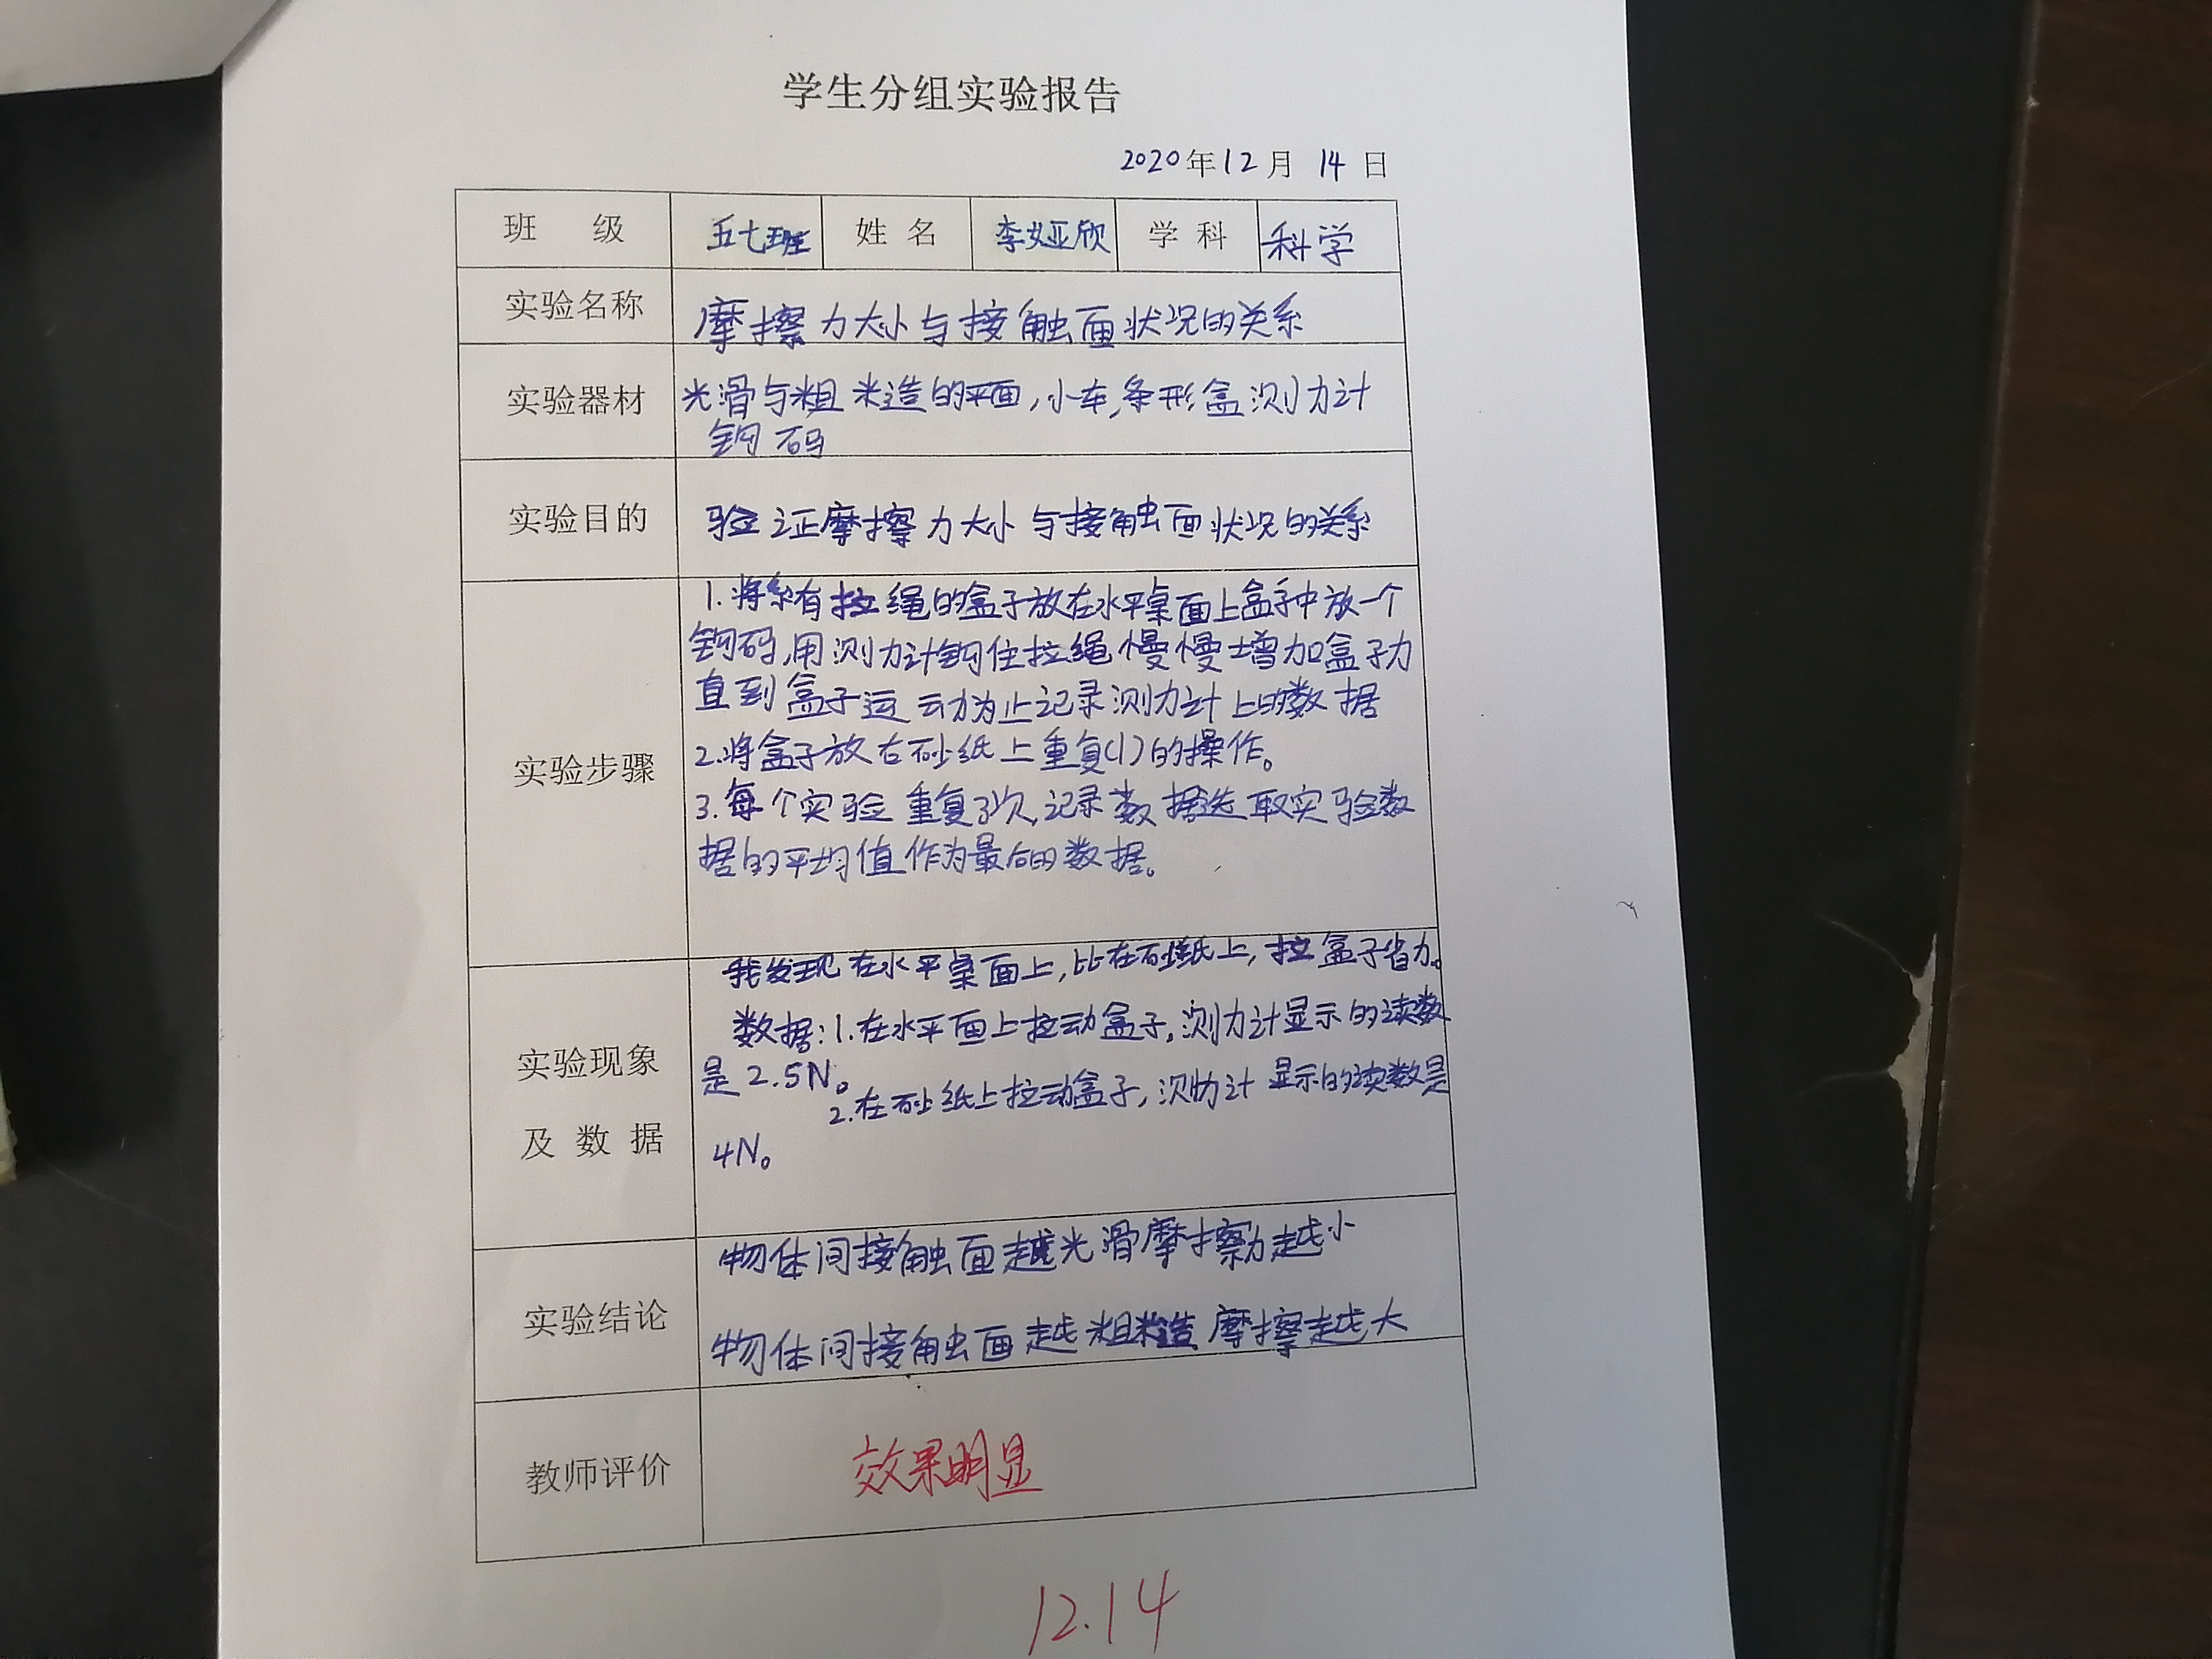 学生分组实验报告
2020年12月 14 日
班 级 五七班 姓 名 李娅欣 学 科 科学
实验名称 摩擦力大小与接触面状况的关系
实验器材 光滑与粗糙的平面,小车,条形盒测力计
钩码
实验目的 验证摩擦力大小与接触面状况的关系
实验步骤
1.将系有拉绳的盒子放在水平桌面上盒子中放一个
钩码,用测力计钩住拉绳慢慢增加盒子力
直到盒子运动为止记录测力计上的数据
2.将盒子放右砂纸上重复(1)的操作。
3.每个实验重复3次,记录数据选取实验数
据的平均值作为最后的数据。
实验现象
及 数 据
我发现在水平桌面上,比在砂纸上,拉盒子省力。
数据:1.在水平面上拉动盒子,测力计显示的读数
是2.5N。
2.在砂纸上拉动盒子,测力计显示的读数是
4N。
实验结论
物体间接触面越光滑摩擦力越小
物体间接触面越粗糙摩擦越大
教师评价 效果明显
12.14